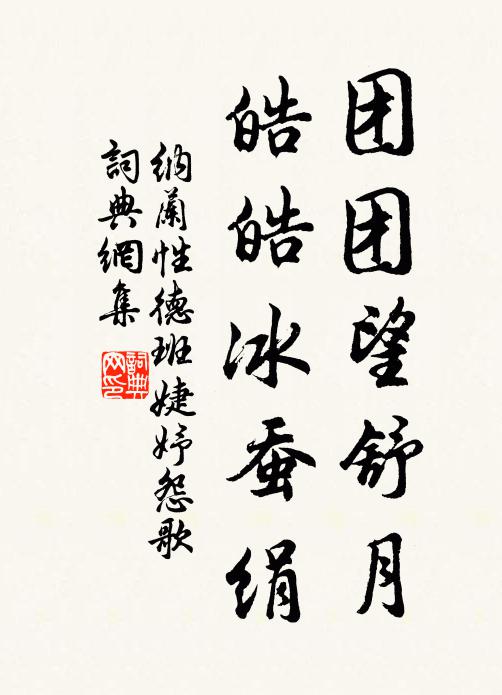 团团望舒月
皓皓冰蚕绢
纳兰性德班婕妤怨歌
詞典網集
詞典
网印